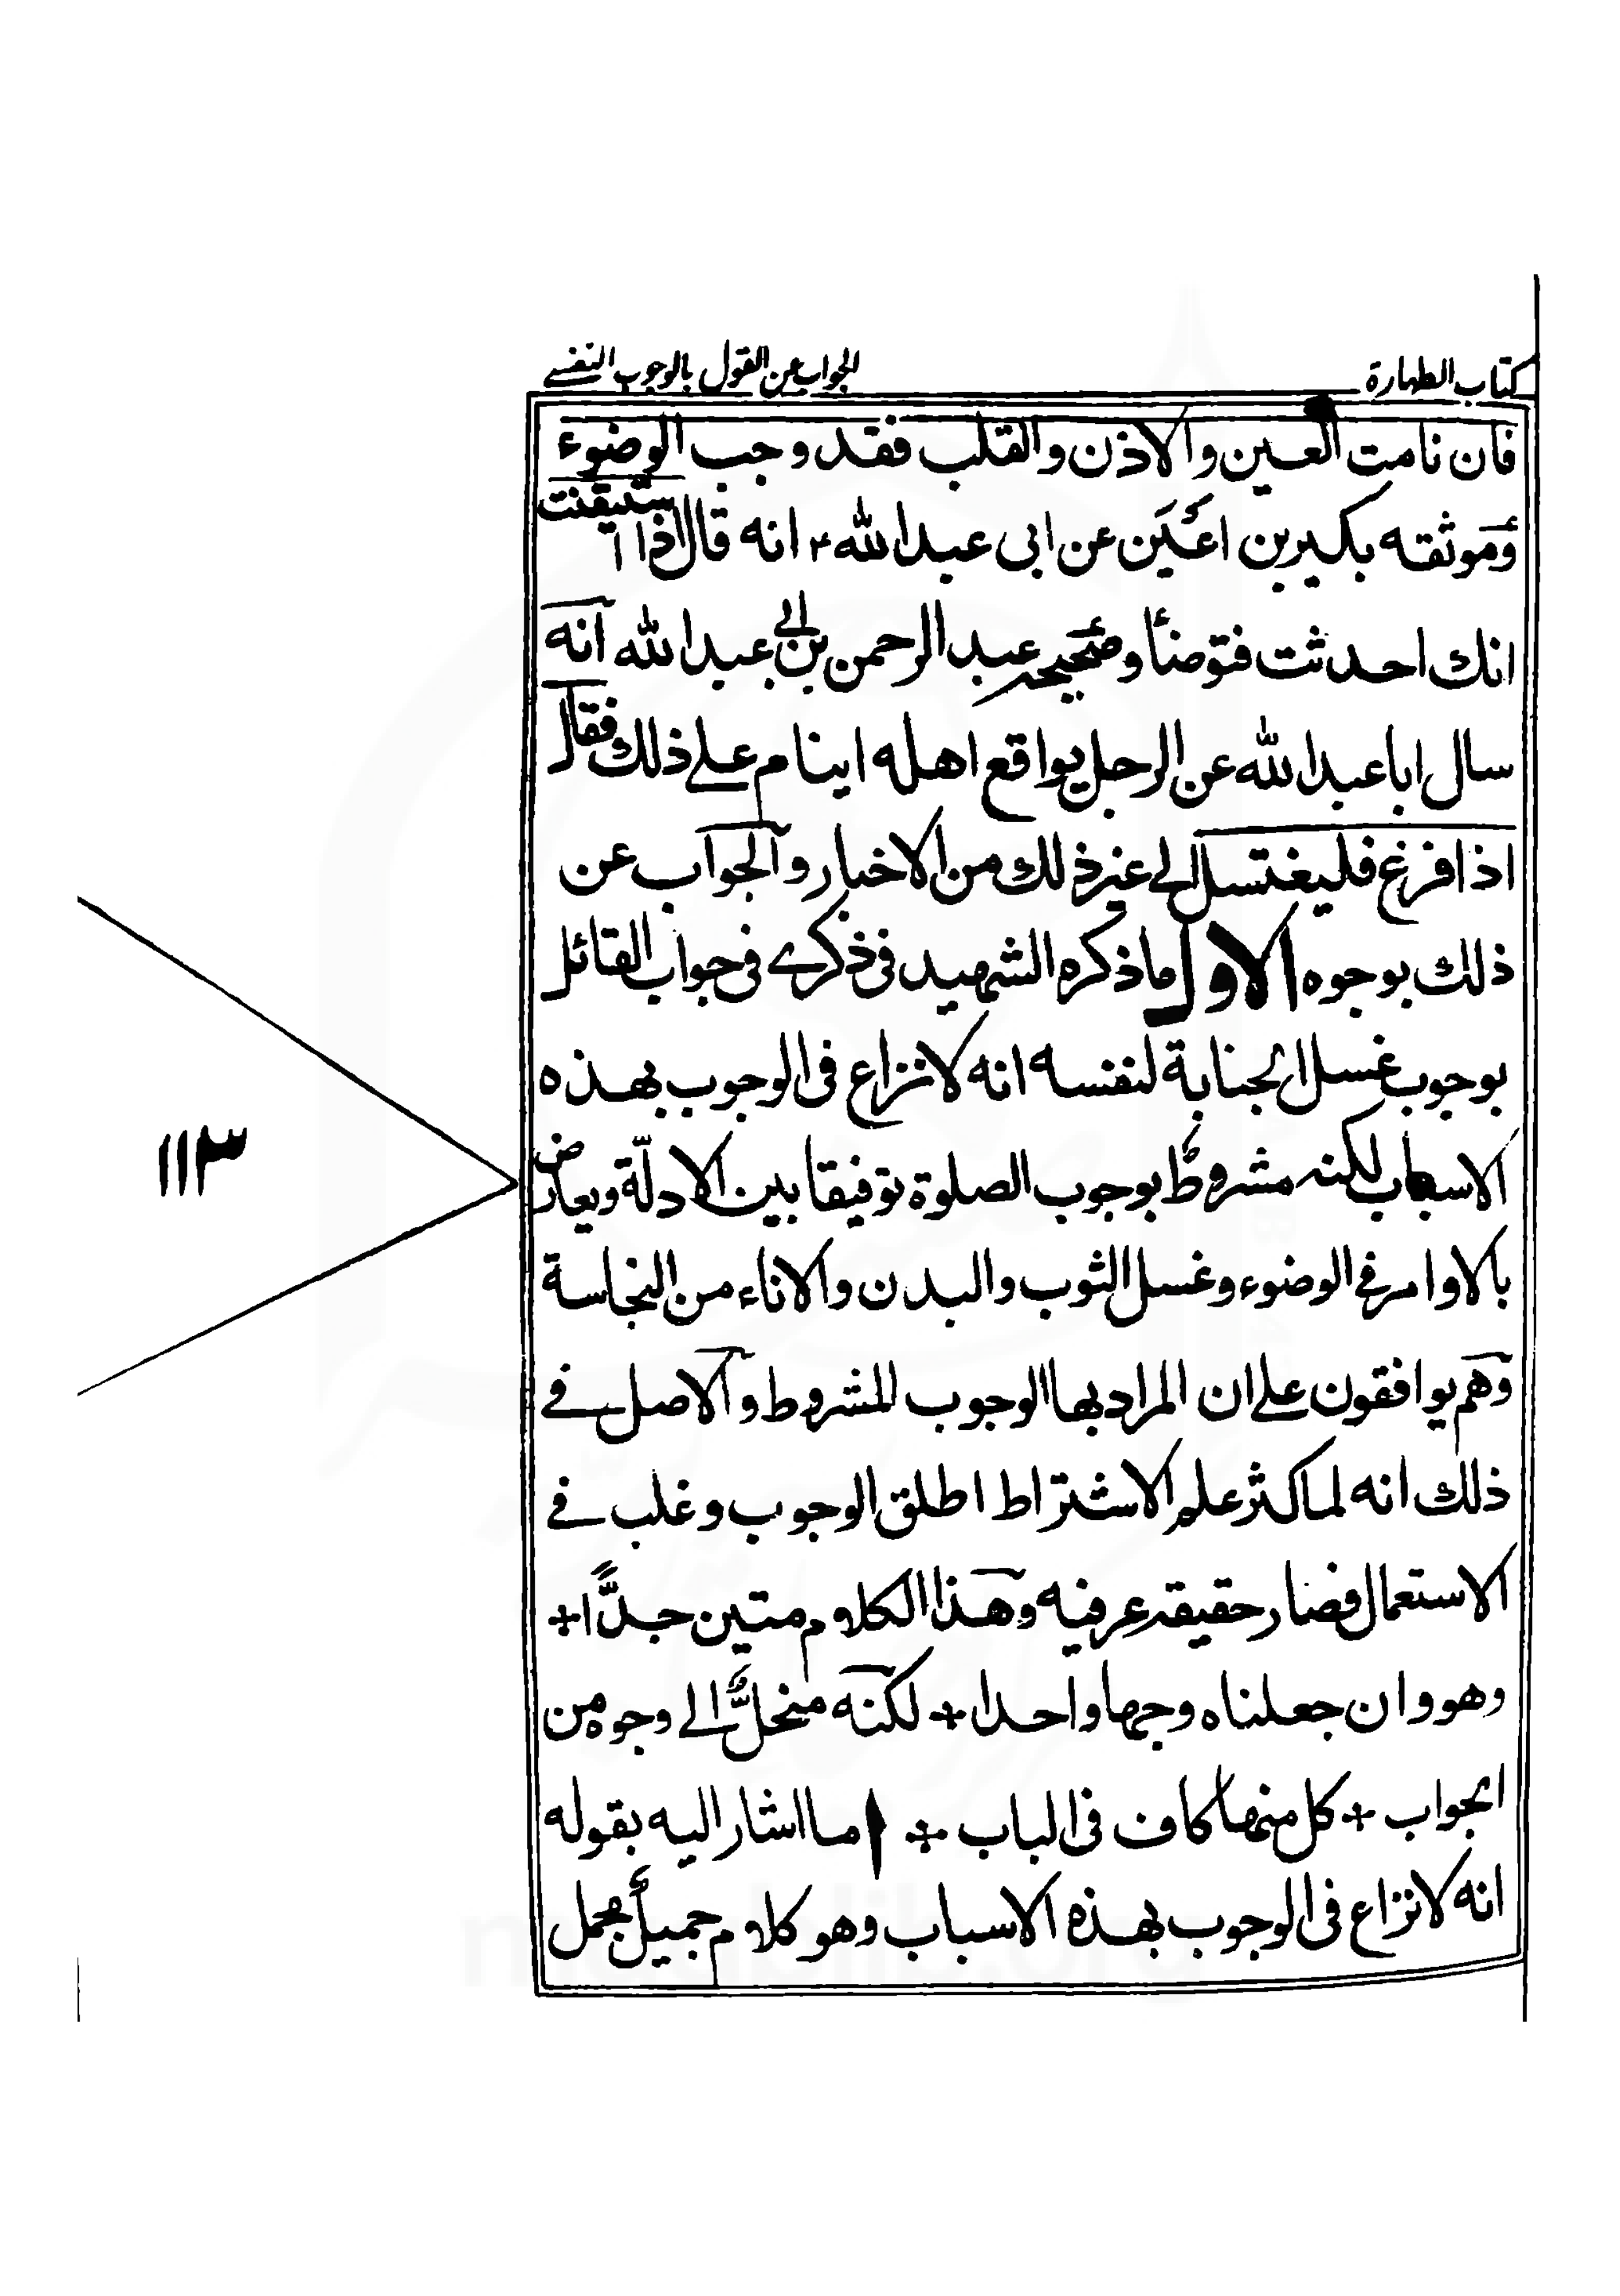 كتاب الطهارة
الجواب عن القول بالوجوب النفسے
فان نامت العين والاذن والقلب فقد وجب الوضوء
وموثقه بكير بن اعين عن ابى عبد الله ع انه قال اذا استيقنت
انك احدثت فتوضأ وصحيحه عبد الرحمن بن ابي عبد الله انه
سال ابا عبد الله عن الرجل يواقع اهله اينام علے ذلك فقال
اذا فرغ فليغتسل الے غير ذلك من الاخبار والجواب عن
ذلك بوجوه الاول ما ذكره الشهيد فى ذكرے فى جواب القائل
بوجوب غسل الجنابة لنفسه انه لا نزاع فى الوجوب بهذه
الاسباب لكنه مشروط بوجوب الصلوة توفيقا بين الادلّة ويعارض
بالاوامر فے الوضوء وغسل الثوب والبدن والاناء من النجاسة
وهم يوافقون علے ان المراد بها الوجوب المشروط والاصل فے
ذلك انه لما كثر علم الاشتراط اطلق الوجوب وغلب فے
الاستعمال فصار حقيقة عرفيه وهذا الكلام متين جدًّا +
وهو وان جعلناه وجها واحدا + لكنه منحلٌّ الے وجوه من
الجواب + كل منها كاف فى الباب + ا ما اشار اليه بقوله
انه لا نزاع فى الوجوب بهذه الاسباب وهو كلام جميل مجمل
١١٣